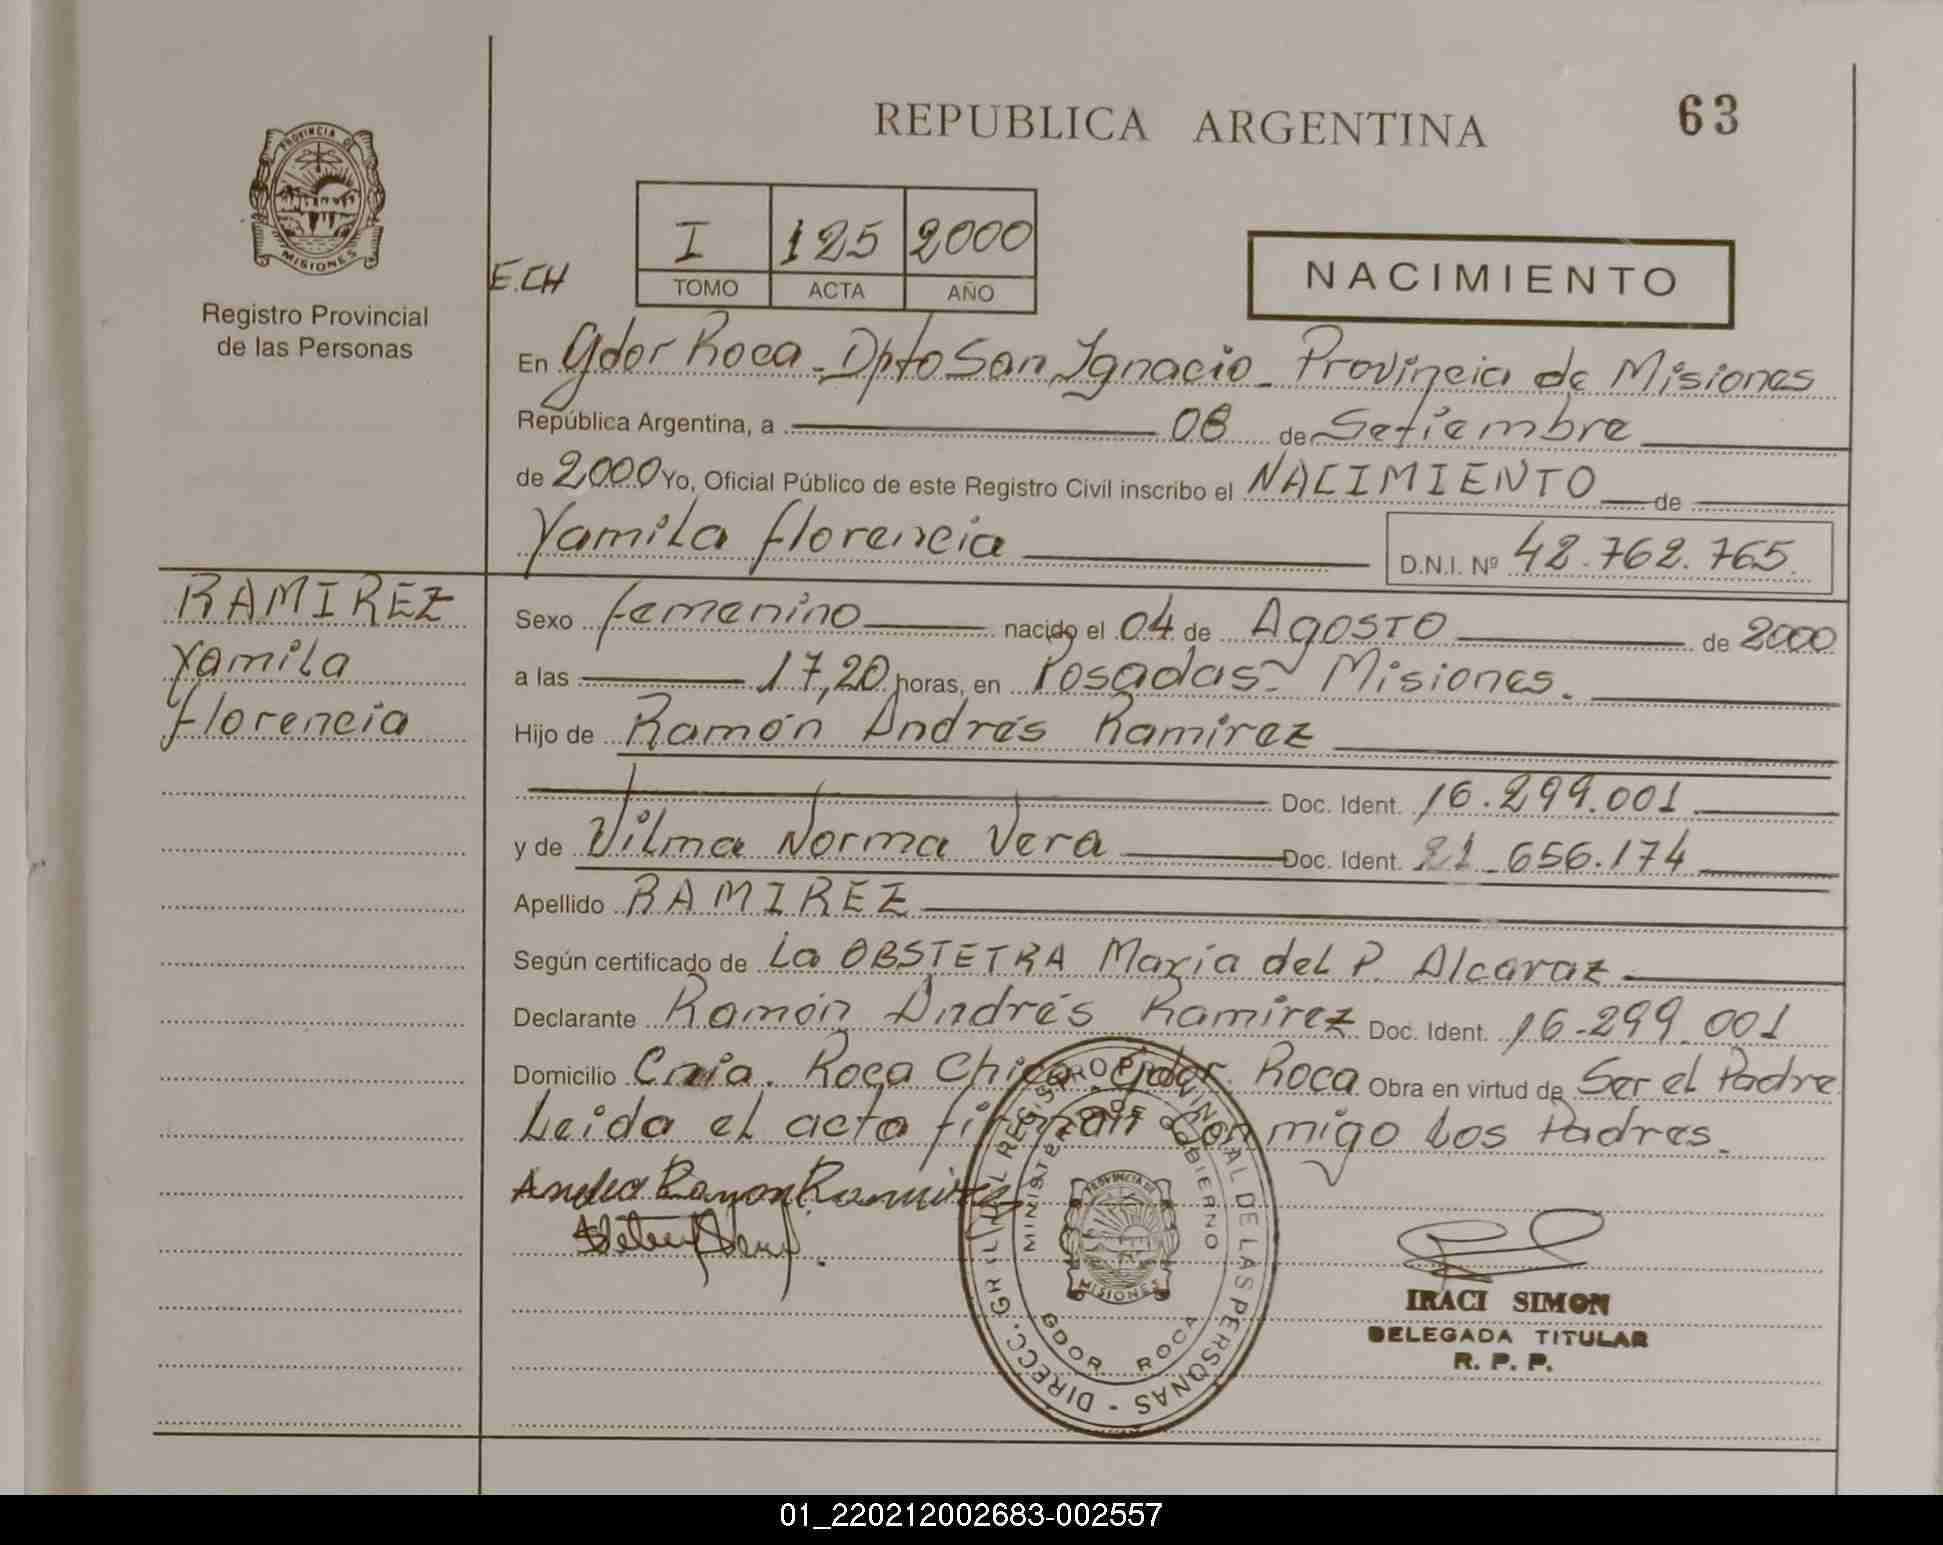 REPUBLICA ARGENTINA
63
PROVINCIA DE
MISIONES
Registro Provincial
de las Personas
E.CH
I 125 2000
TOMO ACTA AÑO
NACIMIENTO
En Gdor Roca - Dpto San Ignacio - Provincia de Misiones
República Argentina, a 08 de Setiembre
de 2000 Yo, Oficial Público de este Registro Civil inscribo el NACIMIENTO de
Yamila Florencia D.N.I. Nº 42.762.765
RAMIREZ
Yamila
Florencia
Sexo femenino nacido el 04 de Agosto de 2000
a las 17,20 horas, en Posadas - Misiones.
Hijo de Ramón Andrés Ramirez
Doc. Ident. 16.299.001
y de Vilma Norma Vera Doc. Ident. 21.656.174
Apellido RAMIREZ
Según certificado de La OBSTETRA María del P. Alcaraz
Declarante Ramón Andrés Ramirez Doc. Ident. 16.299.001
Domicilio Cnia. Roca Chica Gdor Roca Obra en virtud de Ser el Padre
Leida el acta firman Conmigo los Padres.
Ramon Ramirez
REGISTRO PROVINCIAL DE LAS PERSONAS
MINISTERIO DE GOBIERNO
PROVINCIA DE
MISIONES
GDOR ROCA
IRACI SIMON
DELEGADA TITULAR
R. P. P.
01_220212002683-002557